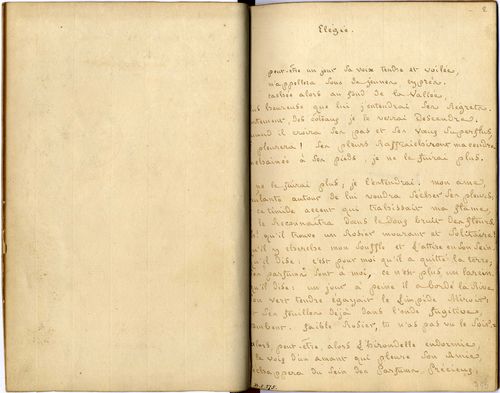 2
Elégie.
peut-être un jour sa voix tendre et voilée,
m'appellera sous de jeunes cyprès.
cachée alors au fond de la vallée,
heureuse que lui j'entendrai ses regrets.
des côteaux je le verrai descendre.
quand il croira ses pas et ses vœux superflus,
pleurera! ses pleurs rafraichiront ma cendre
enchainée à ses pieds, je ne le fuirai plus.
ne le fuirai plus; je l'entendrai. mon ame,
autour de lui voudra sécher ses pleurs;
ce timide accent qui trahissait ma flame,
le reconnaitra dans le doux bruit des fleurs
qu'il trouve un rosier mourant et solitaire!
qu'il y cherche mon souffle et l'attire en son sein
qu'il dise: c'est pour moi qu'il a quitté la terre;
parfums sont à moi, ce n'est plus un larcin
qu'il dise: un jour à peine il a bordé la rive,
son vert tendre égayait le limpide miroir;
et ses feuilles déjà dans l'onde fugitive,
tombent. faible rosier, tu n'as pas vu le soir.
alors peut-être, alors l'hirondelle endormie,
la voix d'un amant qui pleure son amie,
s'échappera du sein des parfums précieux,